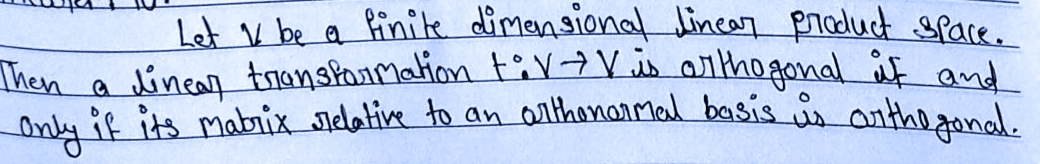 Let V be a finite dimensional linear product space.
Then a linear transformation t: V → V is orthogonal if and
only if its matrix relative to an orthonormal basis is orthogonal.